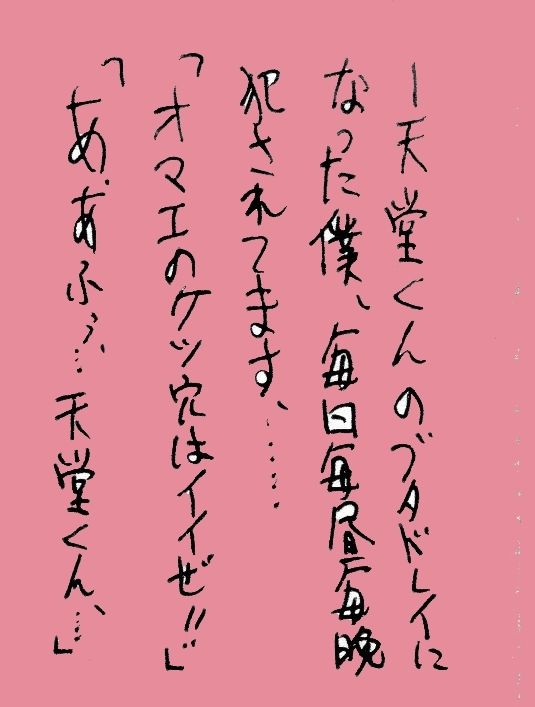 ―天堂くんのブタドレイに
なった僕、毎日毎昼毎晩
犯されてます、……
「オマエのケツ穴はイイぜ!!」
「あ、あふぅ、…天堂くん、…」